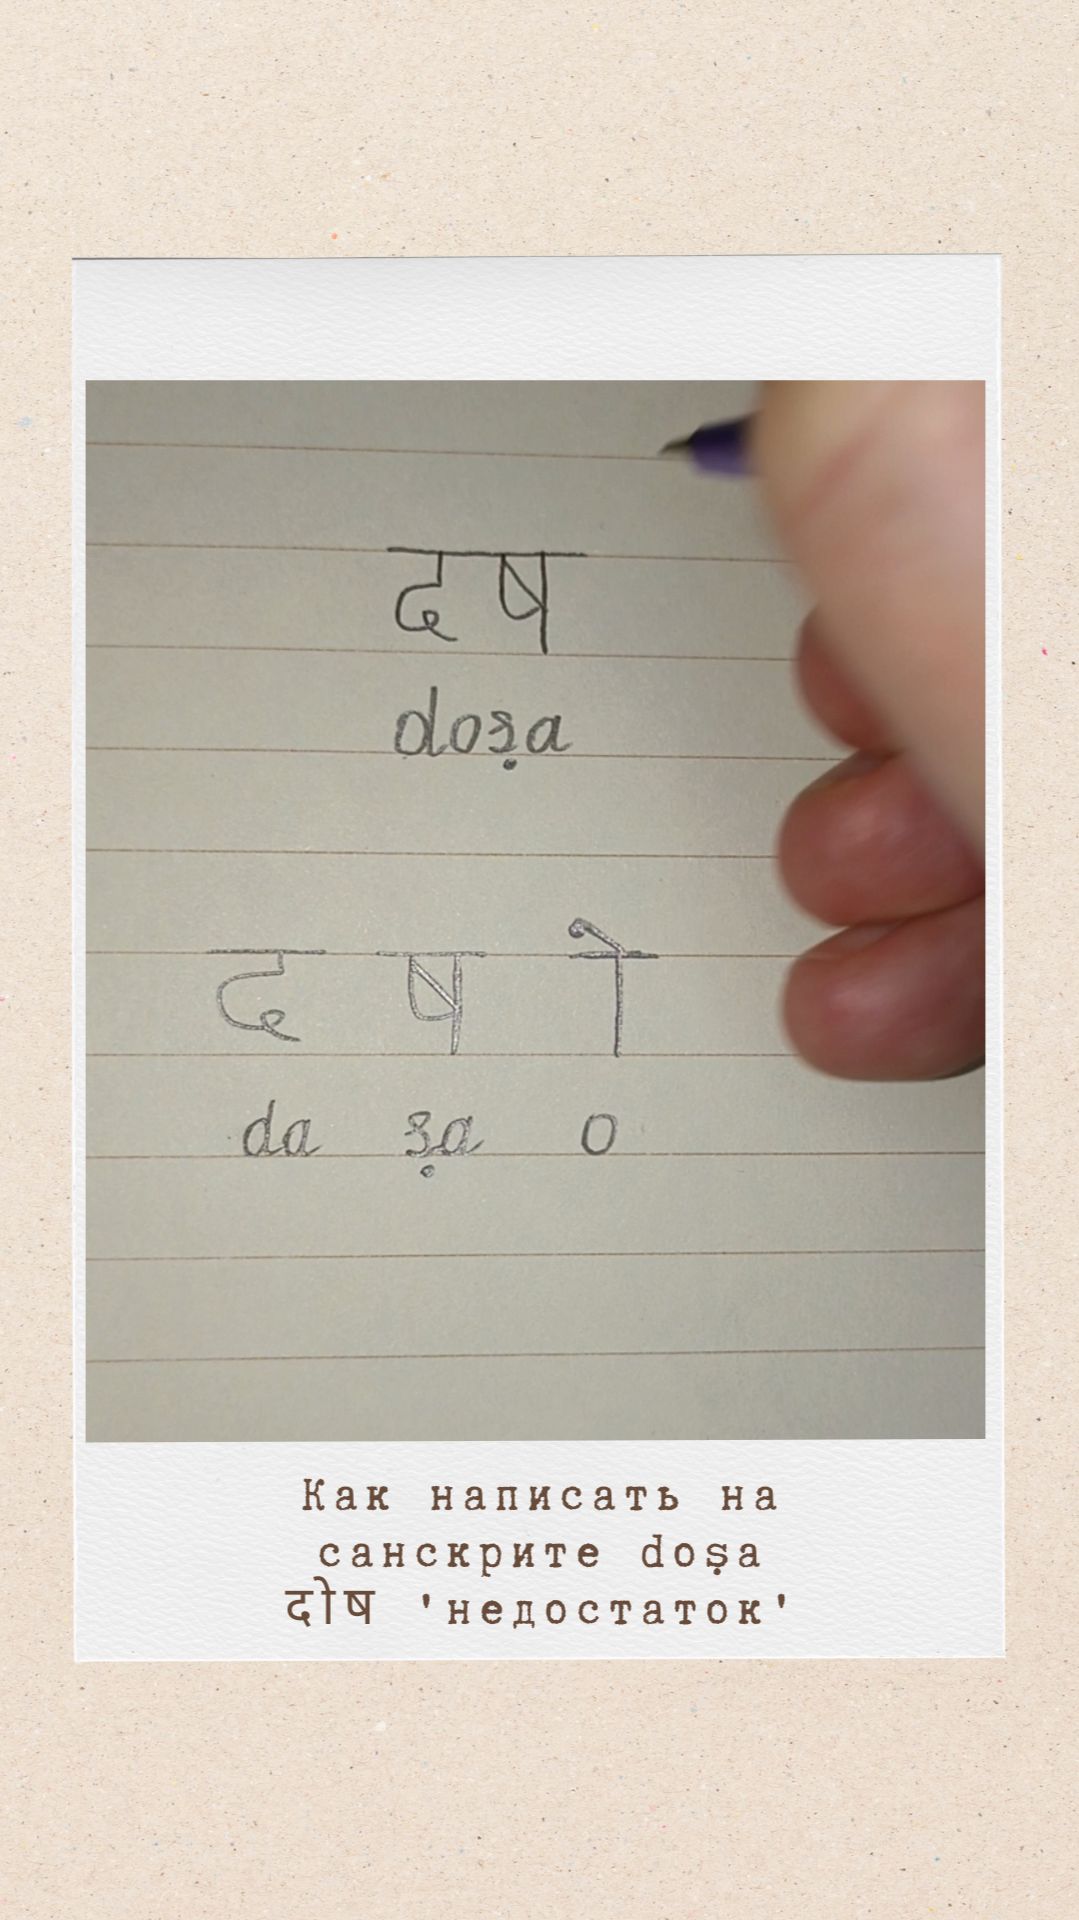 दष
doṣa
द ष ो
da ṣa o
Как написать на
санскрите doṣa
दोष 'недостаток'